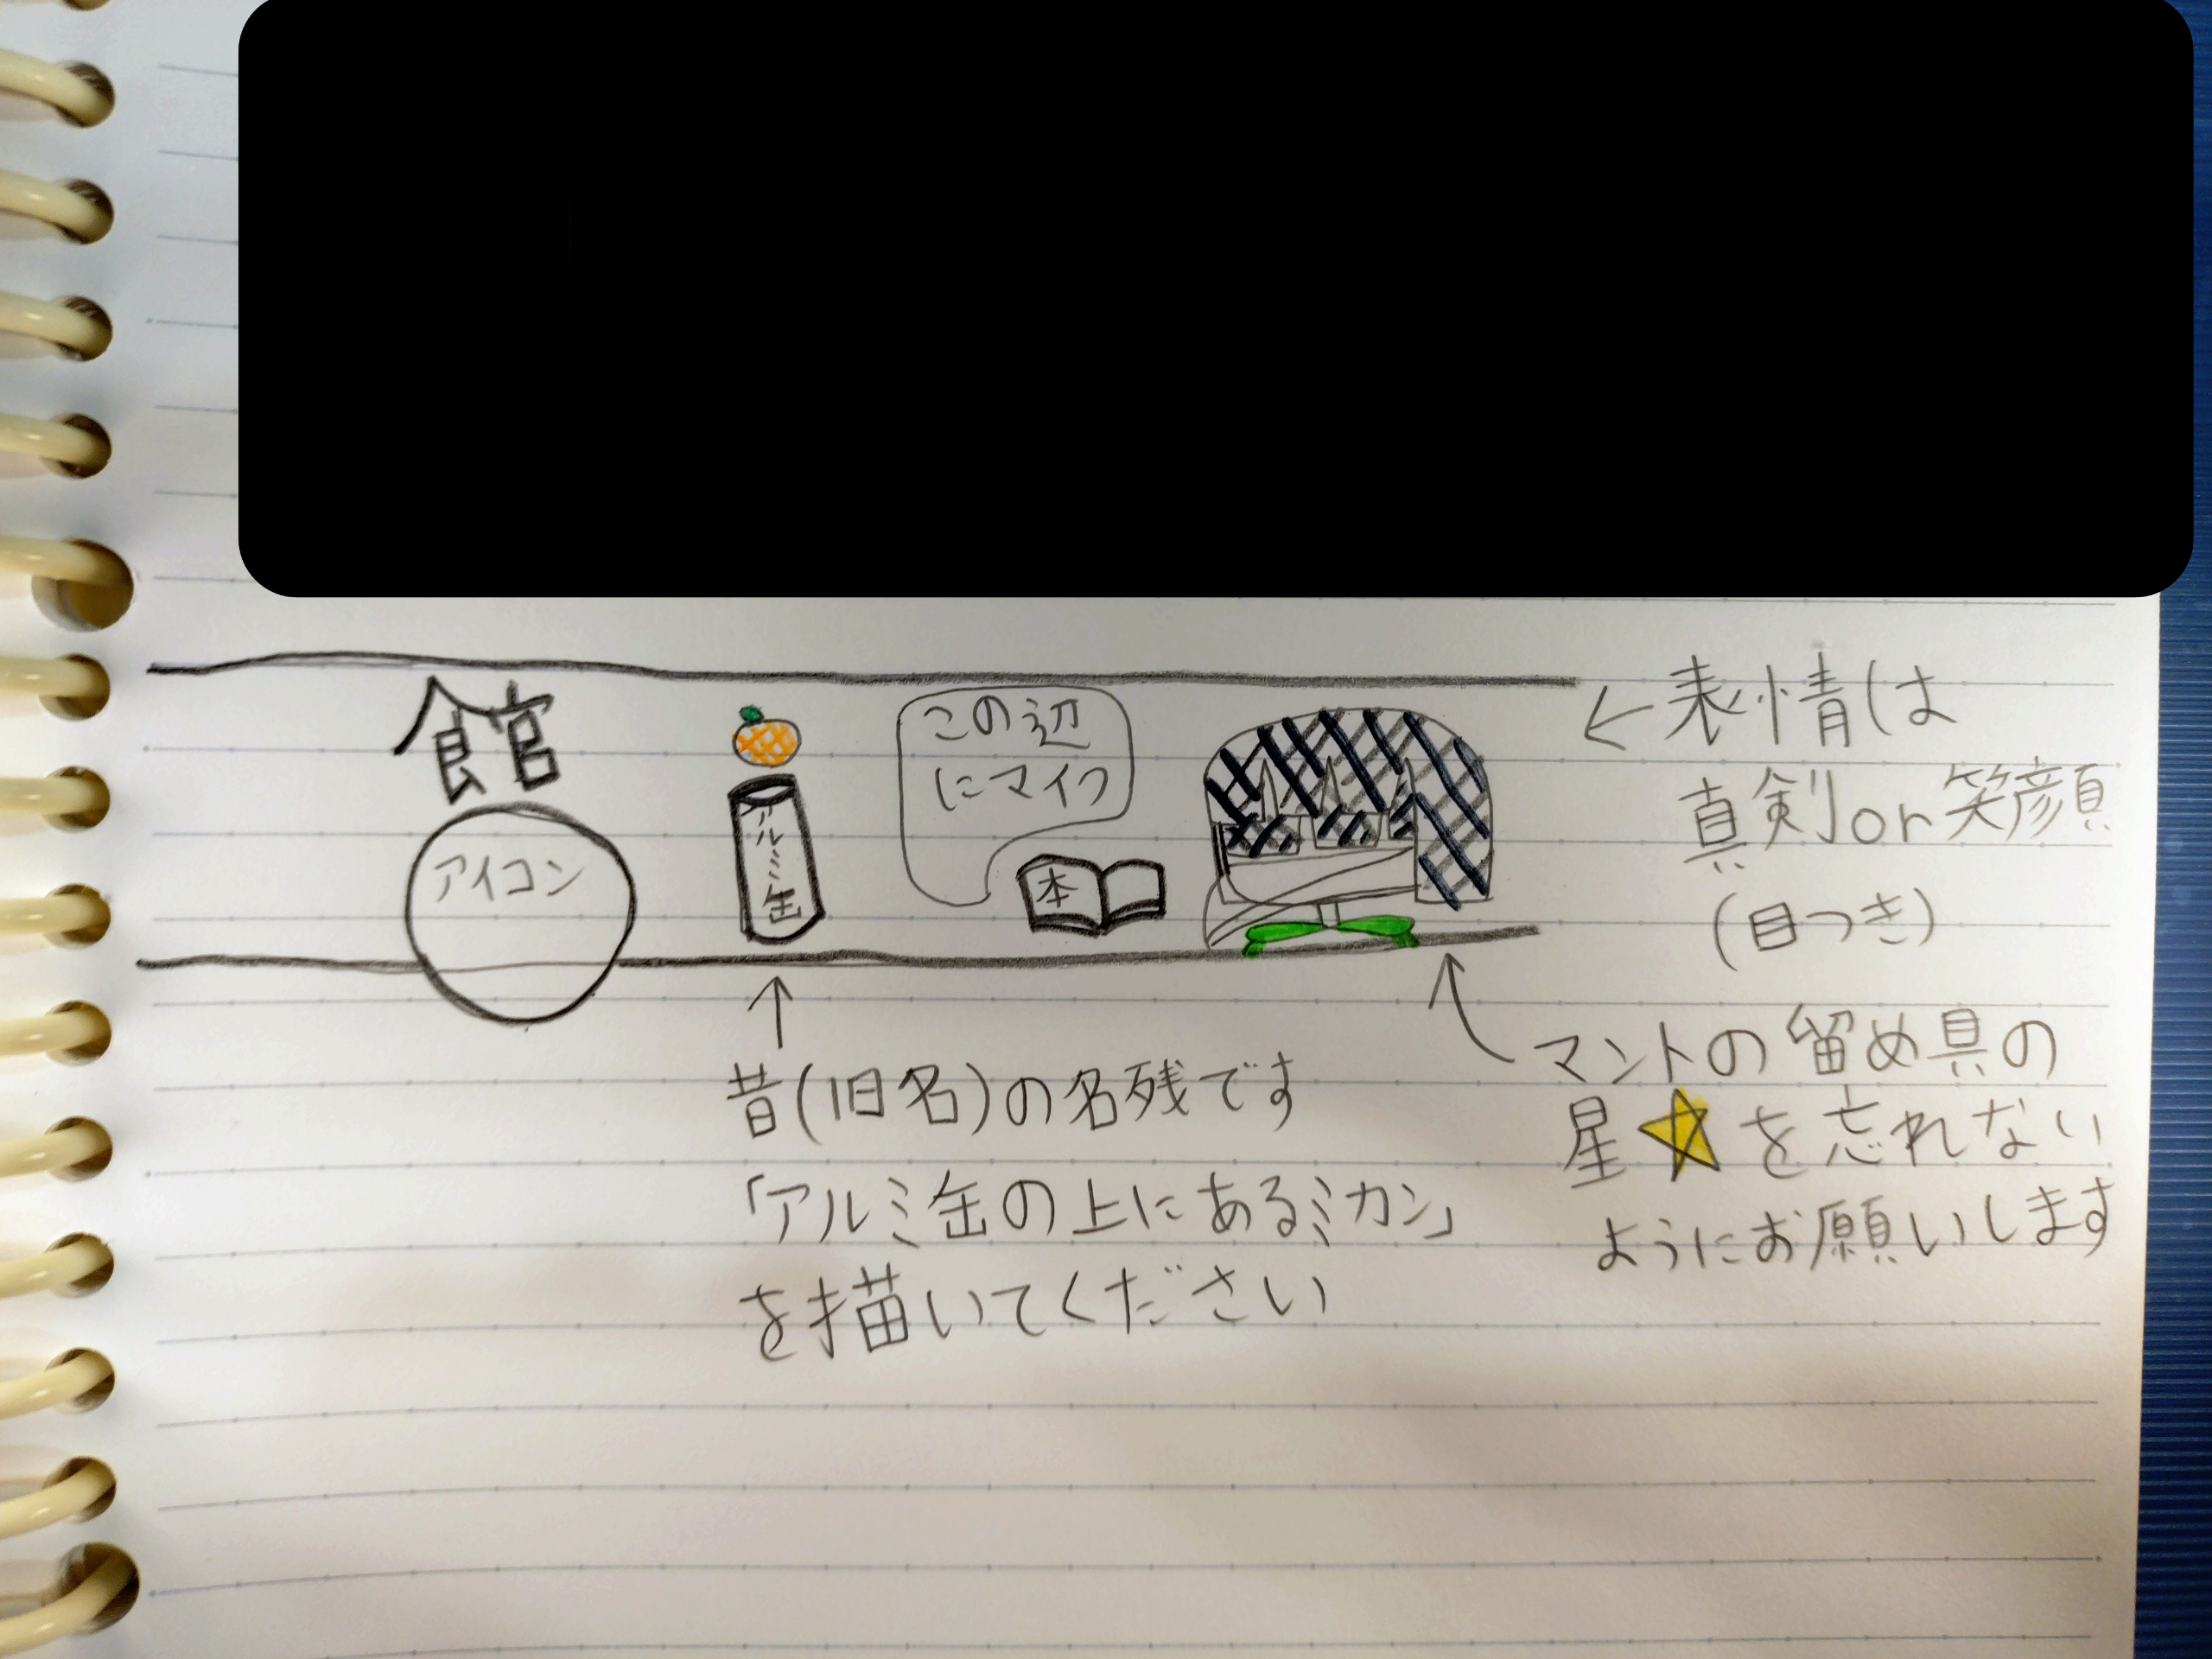 館
アイコン
アルミ缶
この辺
にマイク
本
←表情は
真剣or笑顔
(目つき)
↑
昔(旧名)の名残です
「アルミ缶の上にあるミカン」
を描いてください
マントの留め具の
星☆を忘れない
ようにお願いします